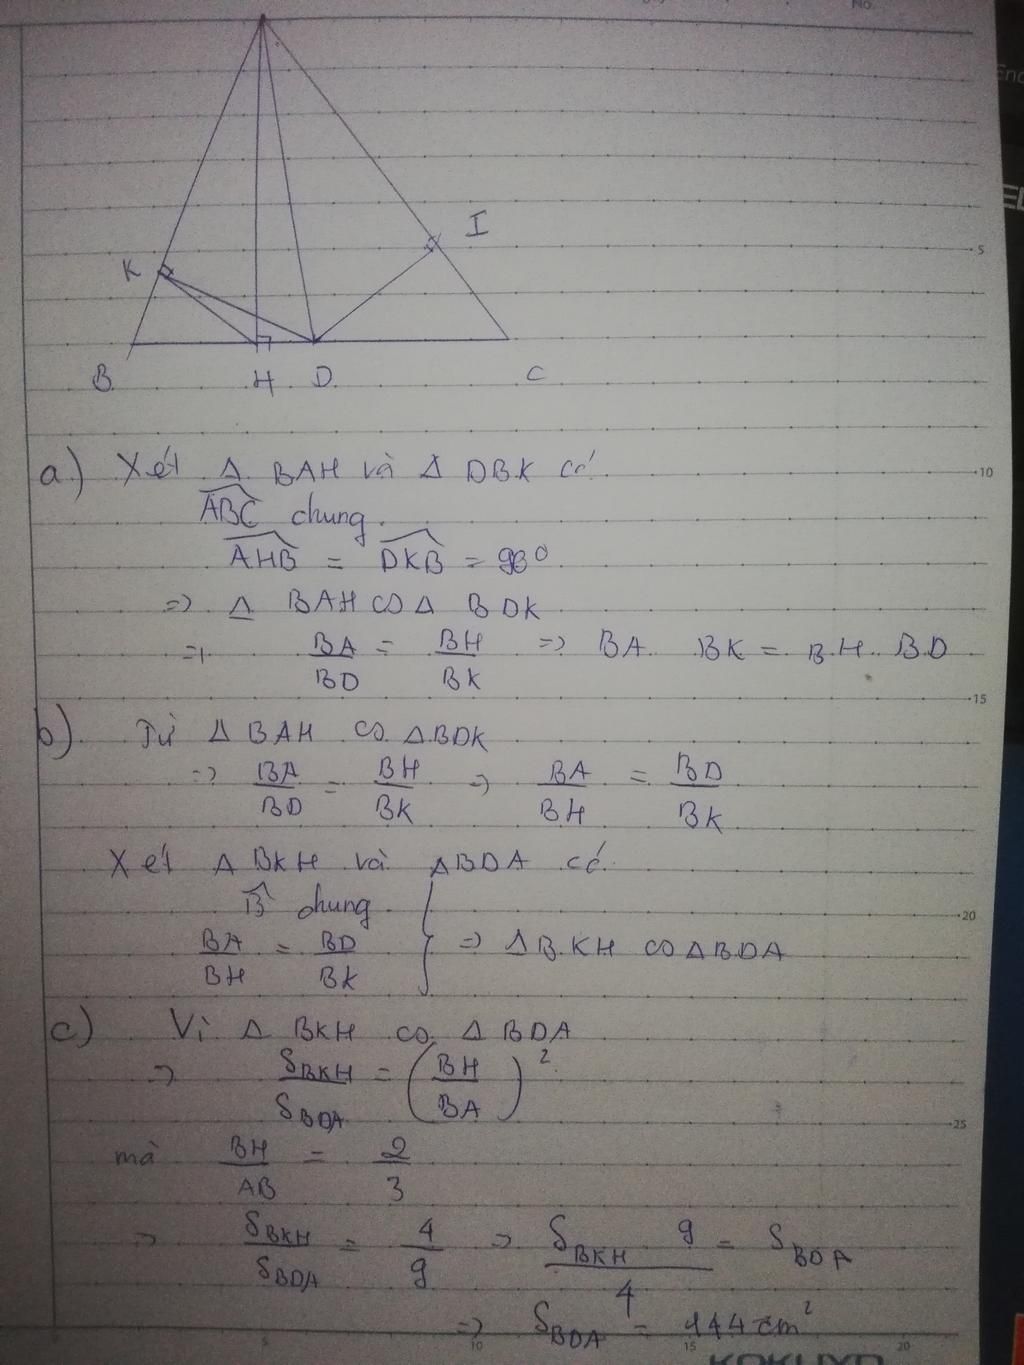 No.
Enc
K
I
5
B H D C
a) Xét Δ BAH và Δ DBK có
ABC chung.
AHB = DKB = 90°
=> Δ BAH ∽ Δ BDK
=> BA/BD = BH/BK => BA. BK = BH. BD
b) Từ Δ BAH ∽ ΔBDK
=> BA/BD = BH/BK => BA/BH = BD/BK
Xét Δ BKH và ΔBDA có.
B chung
BA/BH = BD/BK } => ΔBKH ∽ ΔBDA
c) Vì Δ BKH ∽ Δ BDA
=> S_BKH/S_BDA = (BH/BA)²
mà BH/AB = 2/3
=> S_BKH/S_BDA = 4/9 => S_BKH 9/4 = S_BDA
=> S_BDA = 144 cm²
10
15
20
25
5 10 15 20
KOKUYO